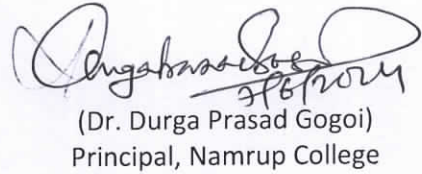 7/6/2024
(Dr. Durga Prasad Gogoi)
Principal, Namrup College